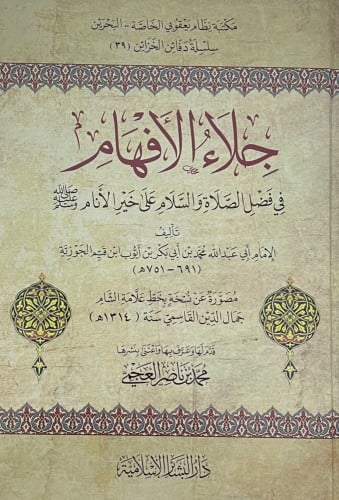 مكتبة نظام يعقوبي الخاصة - البحرين
سلسلة دفائن الخزائن (٣٩)
جلاء الأفهام
في فضل الصلاة والسلام على خير الأنام ﷺ
تأليف
الإمام أبي عبد الله محمد بن أبي بكر بن أيوب ابن قيم الجوزية
(٦٩١-٧٥١هـ)
مصورة عن نسخة بخط علامة الشام
جمال الدين القاسمي سنة (١٣١٤هـ)
قدم لها وعرف بها واعتنى بنشرها
محمد بن ناصر العجمي
دار البشائر الإسلامية